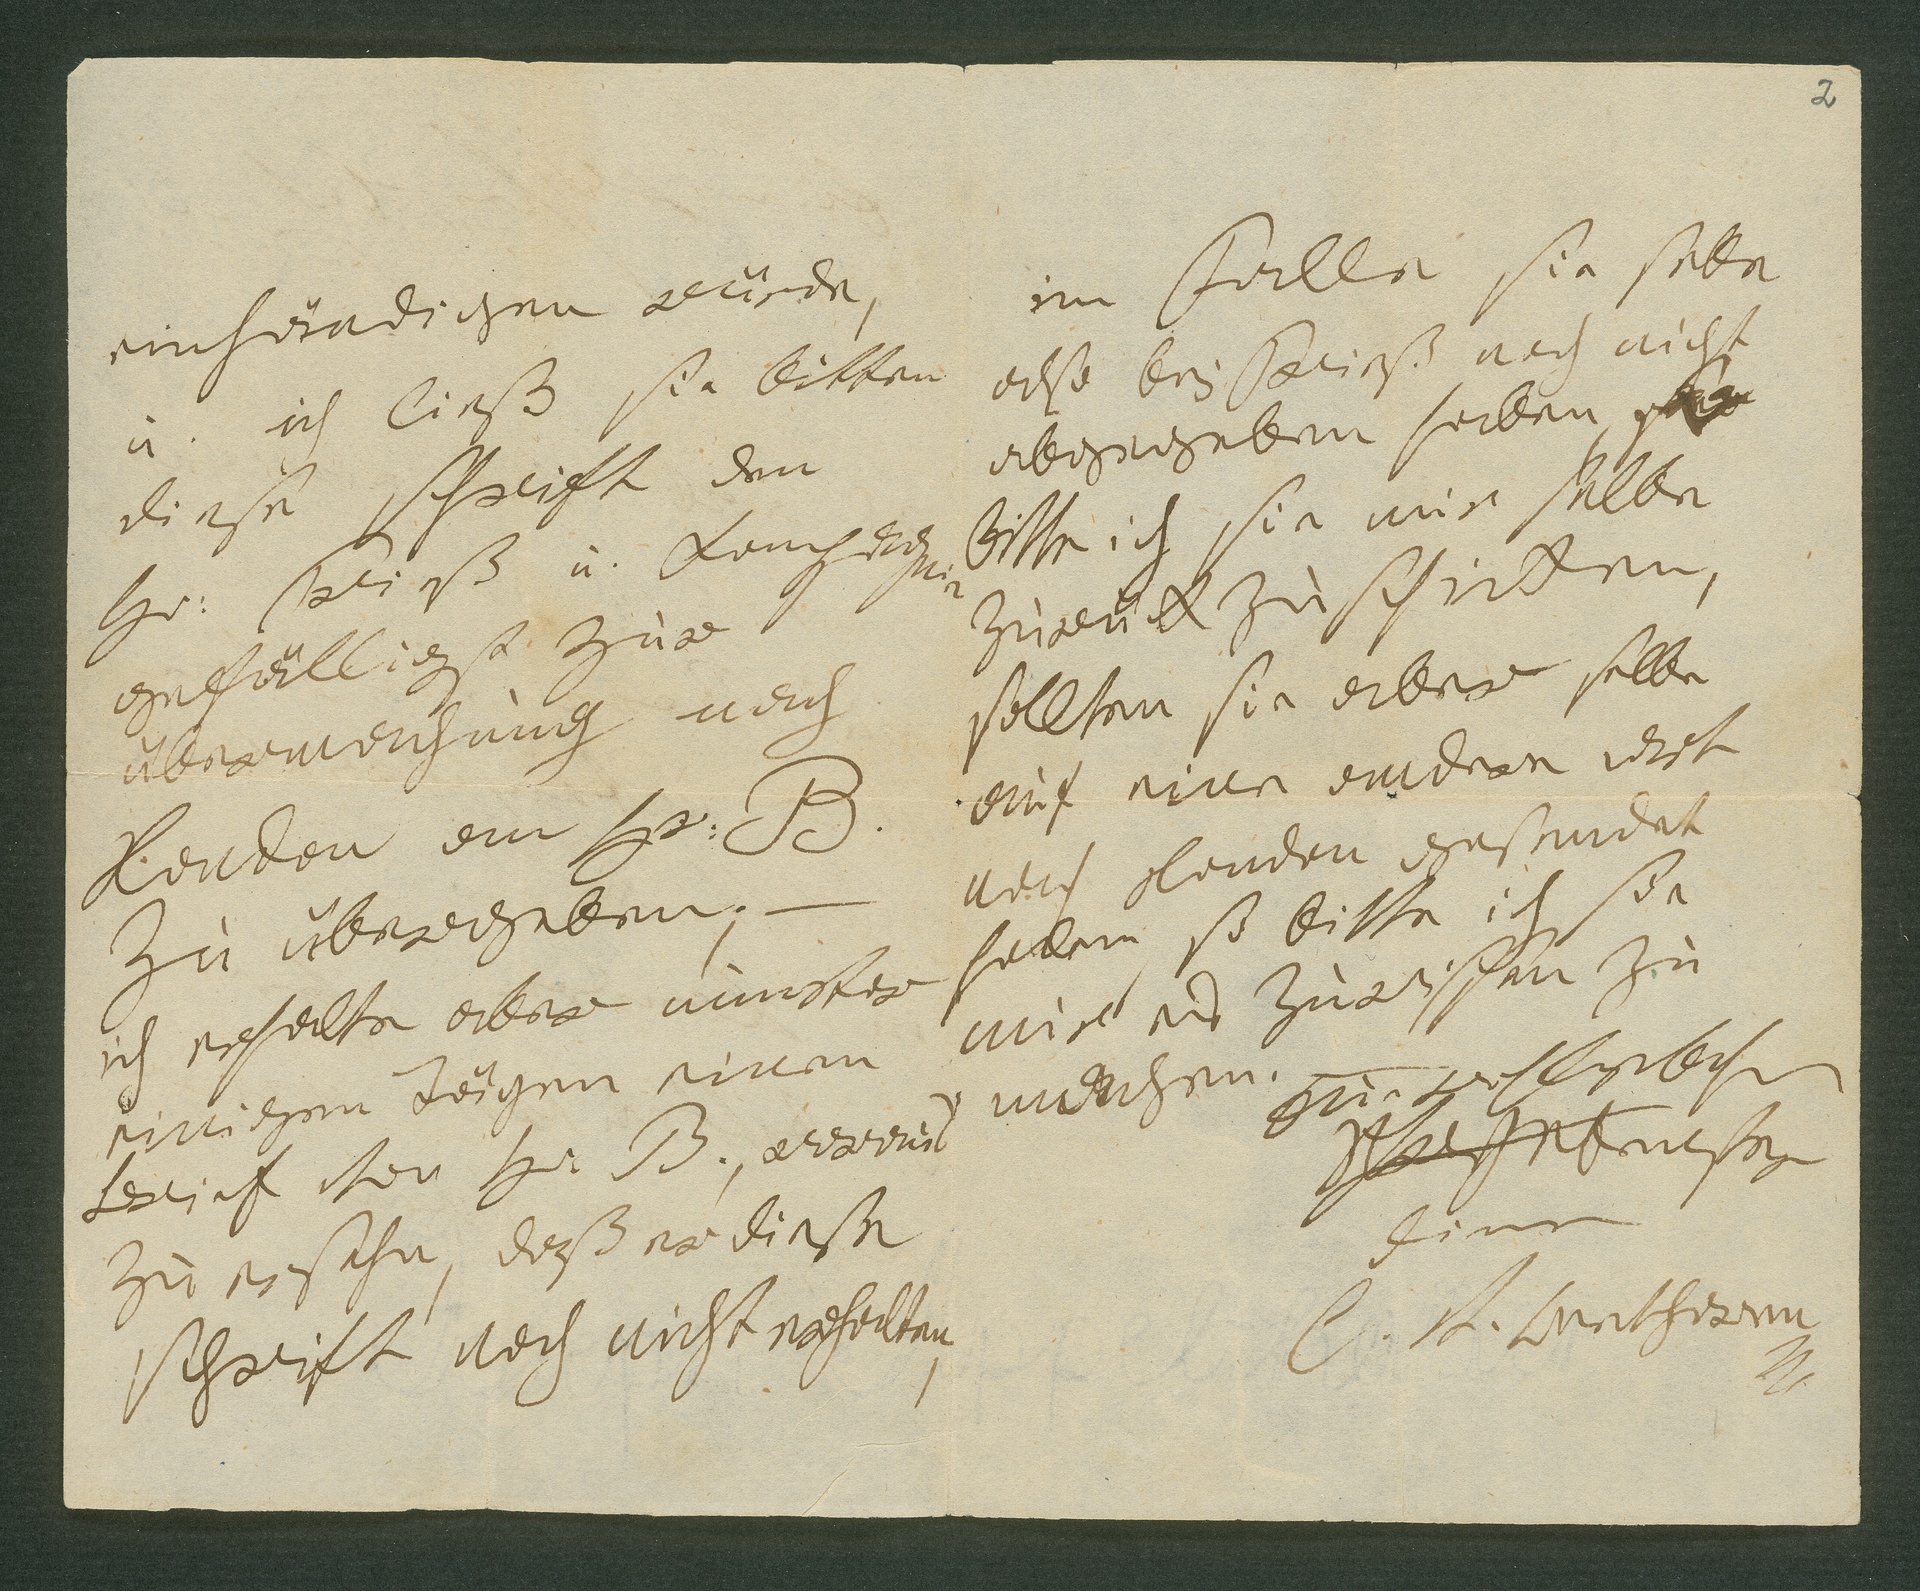 einhändigen würde,
u. ich ließ sie bitten
diese schrift den
Hr: Frieß u. Compagnie
gefälligst zur
übermachung nach
London an Hr: B.
zu übergeben; —
ich erhalte aber unter
einigen Tägen einen
brief von Hr B., woraus
zu ersehn, daß er diese
schrift noch nicht erhalten,
2
im Falle sie selbe
also bey Frieß noch nicht
abgegeben haben,
bitte ich sie mir selbe
zurück zu schicken,
sollten sie aber selbe
auf eine andere art
nach london gesendet
haben so bitte ich sie
mir es zu wißen zu
machen. —
ergebenster
diener
L. v. Beethoven